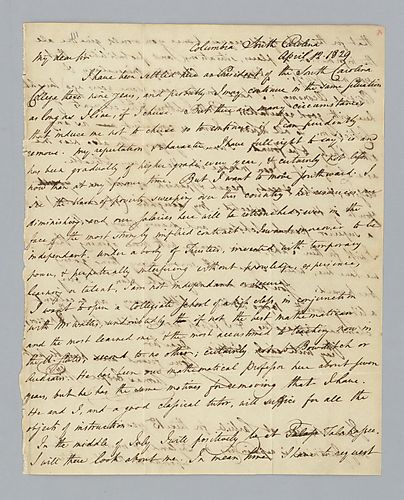 Columbia South Carolina
My dear Sir April 12. 1829
I have been settled here as President of the South Carolina
College these nine years, and probably I may continue in the same situation
as long as I live, if I chuse. But there are many circumstances
that induce me not to chuse to continue. I am
remove. My reputation & character, I have full right to say so and
has been gradually of higher grade every year, & certainly not less
now than at any former time. But I want to move
In the of poverty sweeping over this country, his resources are
diminishing, and our salaries here are to be in the
face of the most strongly implied contract. I want moreover to be
independant: under a body of Trustees, invested with temporary
power, & perpetually interfering without knowledge, experience,
learning or talent, I am not independant
I want to open a Collegiate school of a high class, in conjunction
with Mr Wallace, undoubtedly the if not the best mathematician
and the most learned one, & the most accustomed to teaching now in
the U. States second to no others, certainly not to Bowditch or
Adrain. He has been our mathematical Professor here about seven
years, but he has the same motives for removing that I have.
He and I, and a good classical tutor, will suffice for all the
objects of instruction.
In the middle of July I will positively be at Talahassee.
I will there look about me. In mean time I have to request